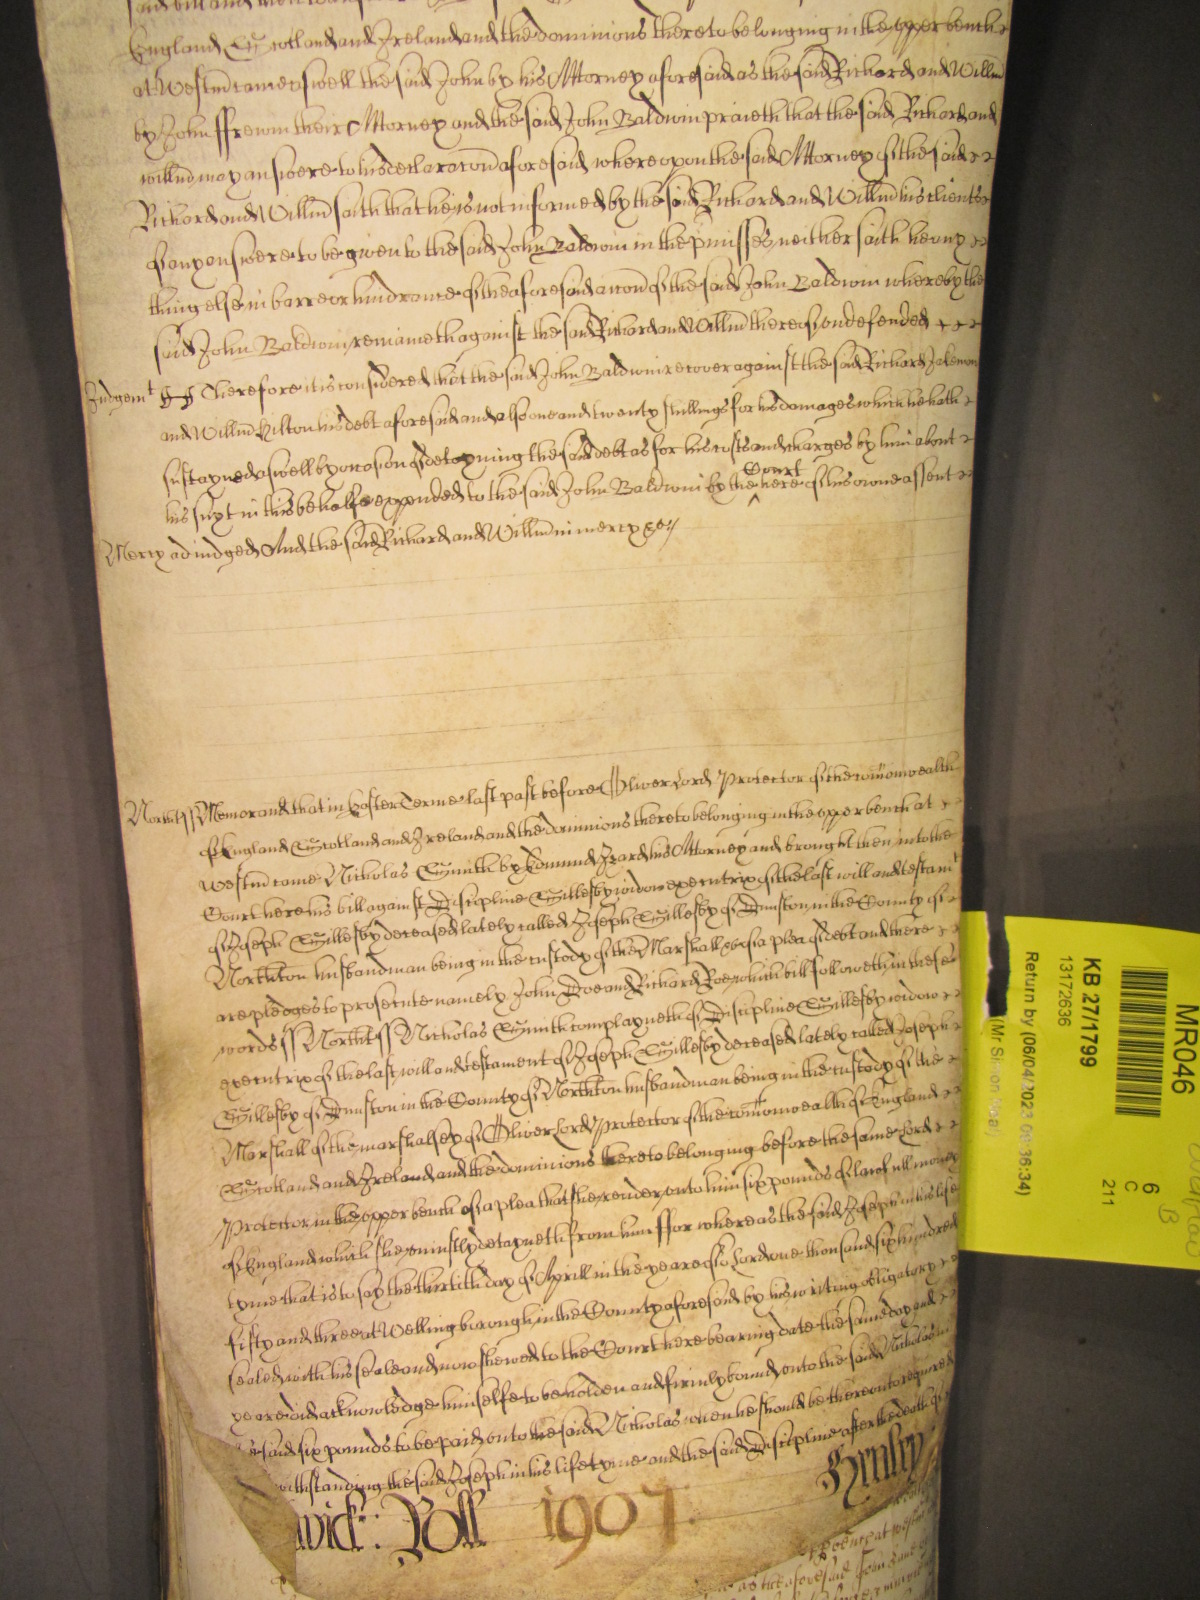 England Scotland and Ireland and the dominions thereto belonging in the upper bench
at Westm came aswell the said John by his Attorney aforesaid as the said Richard and Willm
by John ffrewin their Attorney and the said John Baldwin praieth that the said Richard and
Willm may answere to his declaracon aforesaid whereupon the said Attorney of the said
Richard and Willm saith that he is not informed by the said Richard and Willm his clients
of any answere to be given to the said John Baldwin in the pmisses neither saith he any
thing else in barre or hindrance of the aforesaid accon of the said John Baldwin whereby the
said John Baldwin remaineth against the said Richard and Willm thereof undefended
Judgemt Therefore it is considered that the said John Baldwin recover against the said Richard
and Willm Hilton his debt aforesaid and also one and twenty shillings for his damages which he hath
susteyned aswell by occasion of deteyning the said debt as for his costs and charges by him about
his suyt in this behalfe expended to the said John Baldwin by the Court here of his owne assent
Mercy adiudged And the said Richard and Willm in mercy &c //
Northt ss Memorand that in Easter Terme last past before Oliver Lord Protector of the comonwealth
of England Scotland and Ireland and the dominions thereto belonging in the upper bench at
Westm came Nicholas Smith by Edmund Izard his Attorney and brought then into the
Court here his bill against Discipline Sillesby widow executrix of the last will and testamt
of Joseph Sillesby deceased lately called Joseph Sillesby of Dunston in the County of
Northton husbandman being in the custody of the Marshall &c of a plea of debt and there
are pledges to prosecute namely John Doe and Richard Roe which bill followeth in these
words ss Northt ss Nicholas Smith complayneth of Discipline Sillesby widow
executrix of the last will and testament of Joseph Sillesby deceased lately called Joseph
Sillesby of Dunston in the County of Northton husbandman being in the custody of the
Marshall of the marshalsey of Oliver Lord Protector of the comonwealth of England
Scotland and Ireland and the dominions thereto belonging before the same Lord
Protector in the upper bench of a plea that she render unto him six pounds of lawfull money
of England which she uniustly deteyneth from him ffor whereas the said Joseph in his life
tyme that is to say the thirtith day of Aprill in the yeare of o Lord one thousand six hundred
fifty and three at Wellingborough in the County aforesaid by his writing obligatory
sealed with his seale and now shewed to the Court here bearing date the same day and
yeare did acknowledge himselfe to be holden and firmly bound unto the said Nicholas in
said six pounds to be paid unto the said Nicholas when he should be thereunto required
withstanding the said Joseph in his life tyme and the said Discipline after the death of
wick: Roll 1907. Henley
MR046
6
C
211
KB 27/1799
13172636
Return by (06/04/2023